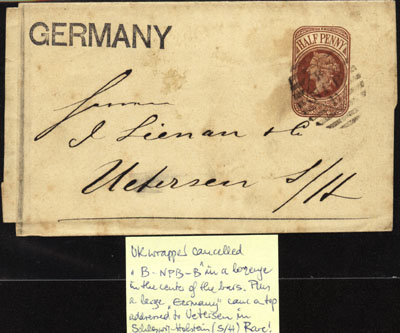 GERMANY
HALF PENNY
Herrn
J. Lienau & Co
Uetersen S/H
UK wrapper cancelled
"B-NPB-B" in a lozenge
in the centre of the bars. Plus
a large "Germany" canc a top
addressed to Uetersen in
Schleswig-Holstein (S/H) Rare!